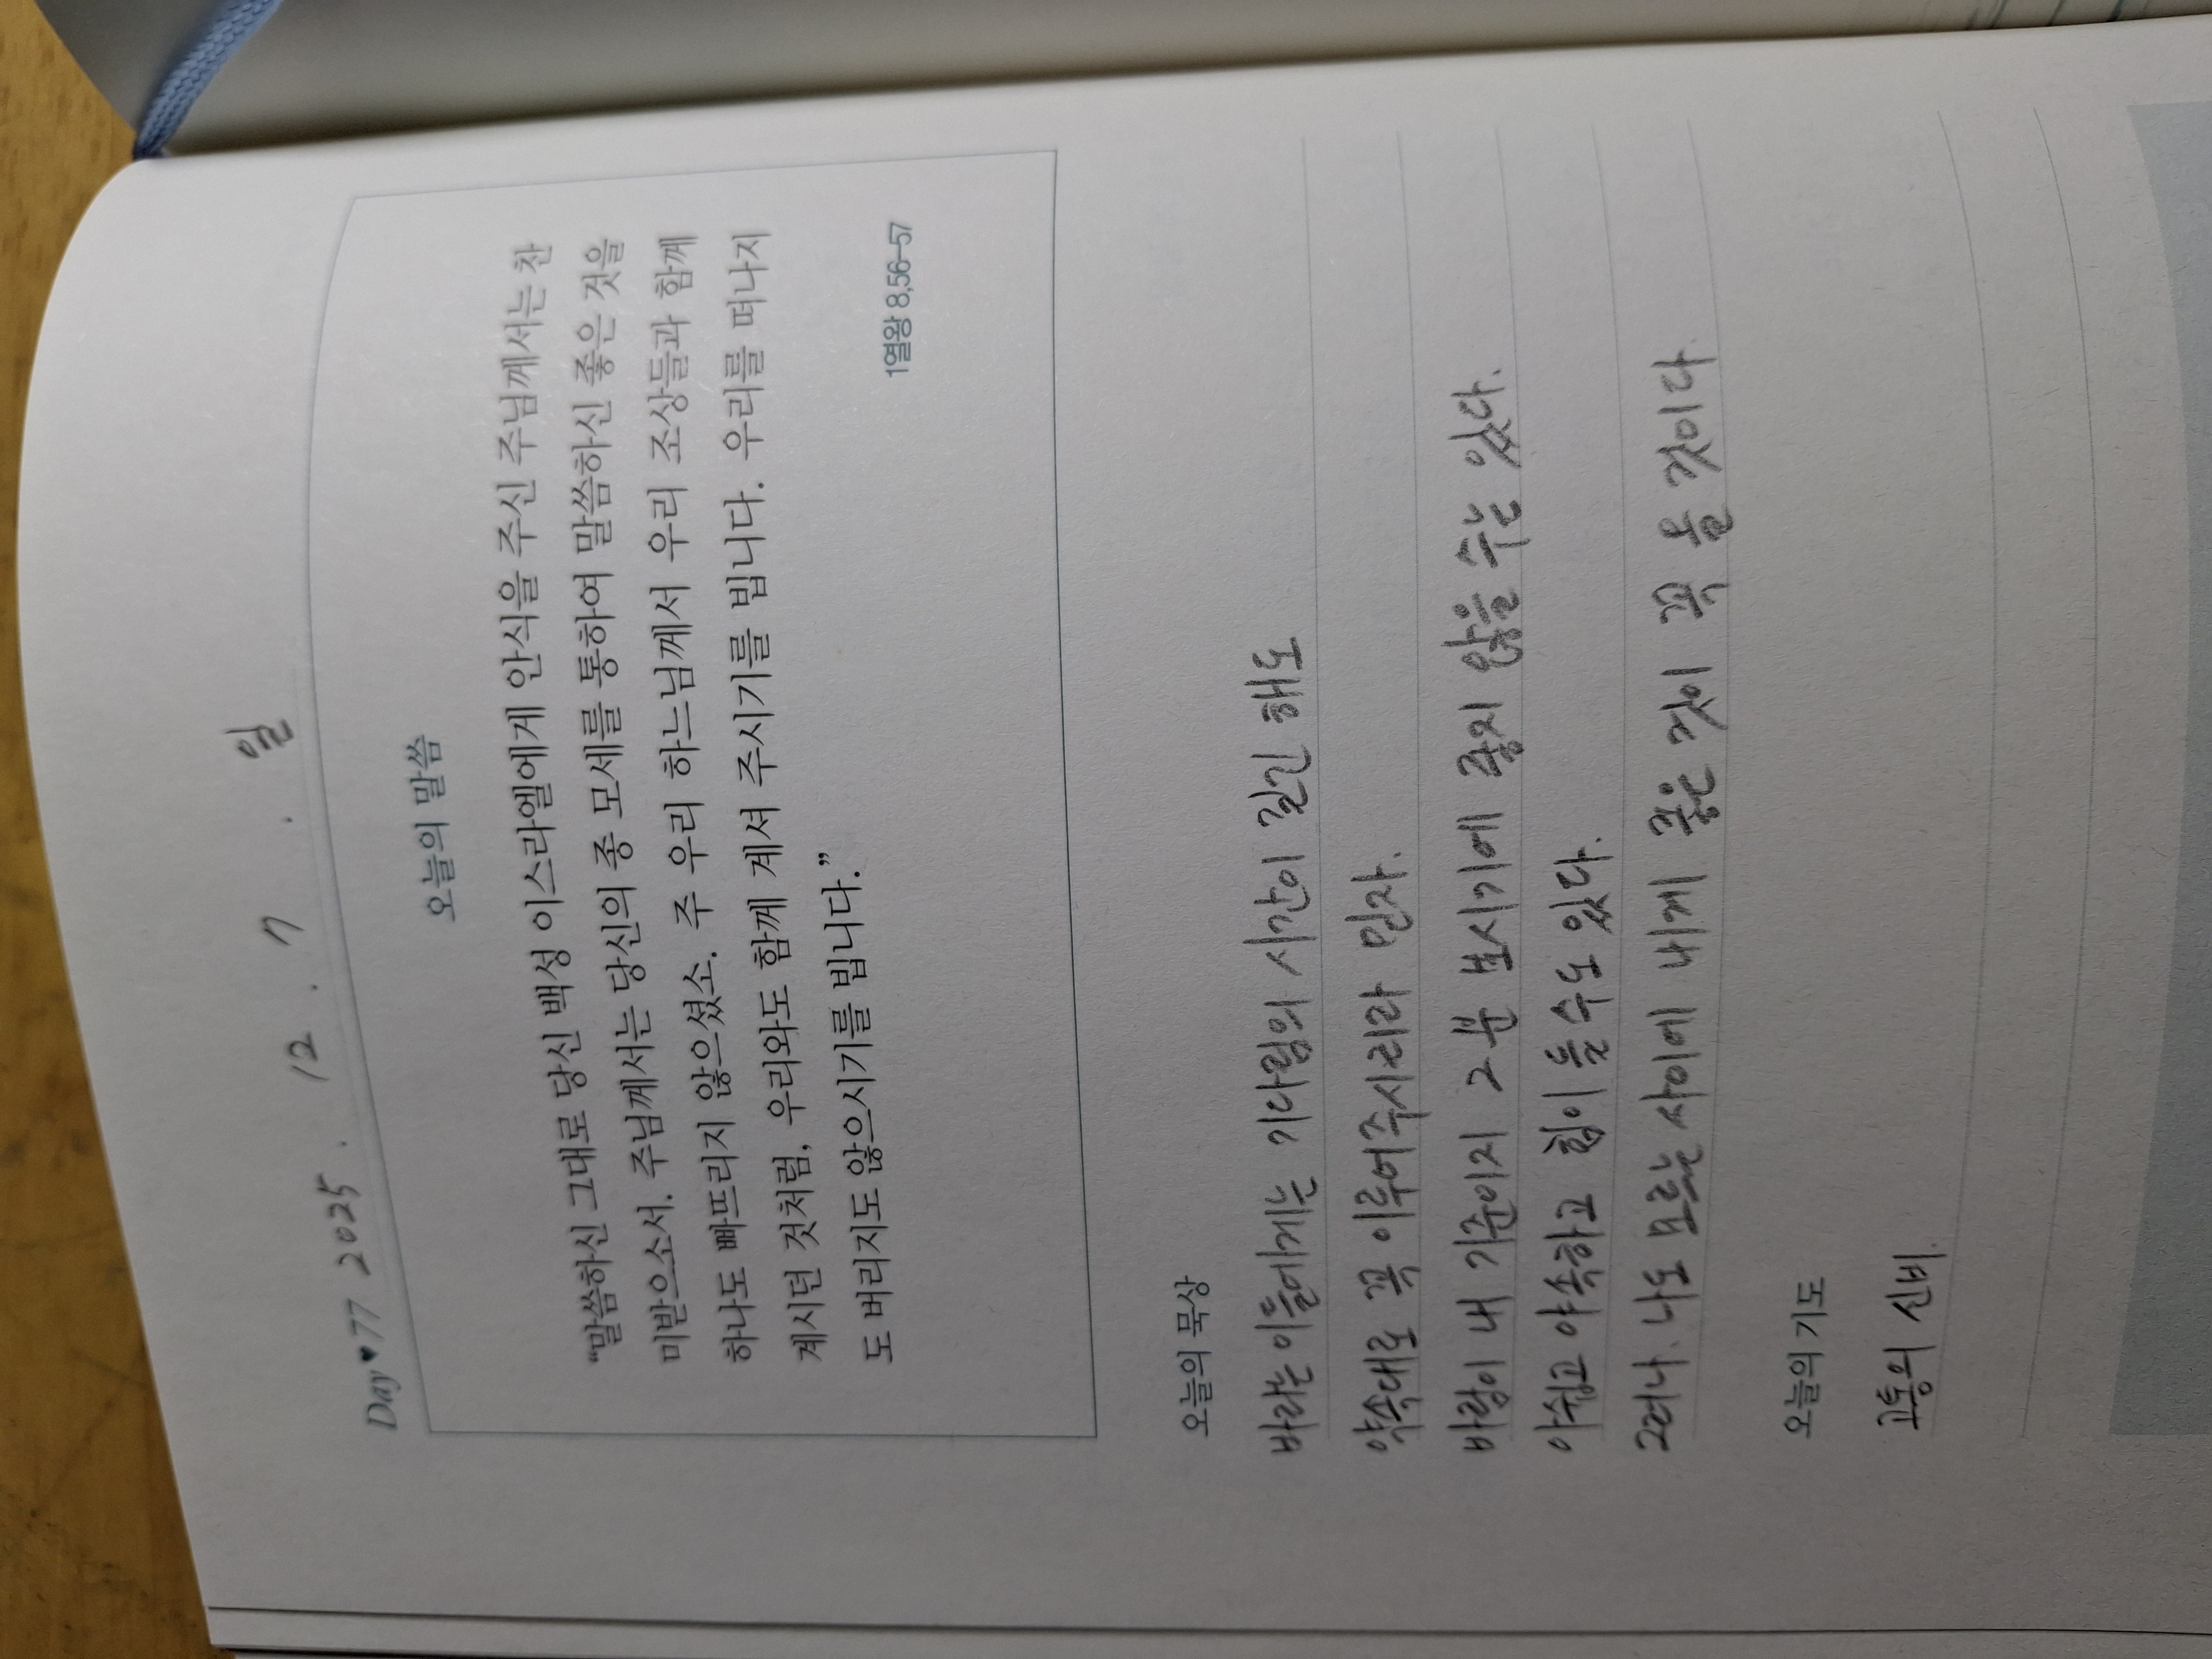 Day♥77 2025. 12. 7. 일
오늘의 말씀
“말씀하신 그대로 당신 백성 이스라엘에게 안식을 주신 주님께서는 찬
미받으소서. 주님께서는 당신의 종 모세를 통하여 말씀하신 좋은 것을
하나도 빠뜨리지 않으셨소. 주 우리 하느님께서 우리 조상들과 함께
계시던 것처럼, 우리와도 함께 계셔 주시기를 빕니다. 우리를 떠나지
도 버리지도 않으시기를 빕니다.”
1열왕 8,56—57
오늘의 묵상
바라는 이들에게는 기다림의 시간이 길긴 해도
약속대로 꼭 이루어주시리라 믿자.
바람이 내 기준이지 그분 보시기에 좋지 않을 수는 있다.
아쉽고 야속하고 힘이 들 수도 있다.
그러나 나도 모르는 사이에 내게 좋은 것이 꼭 올 것이다
오늘의 기도
고통의 신비.